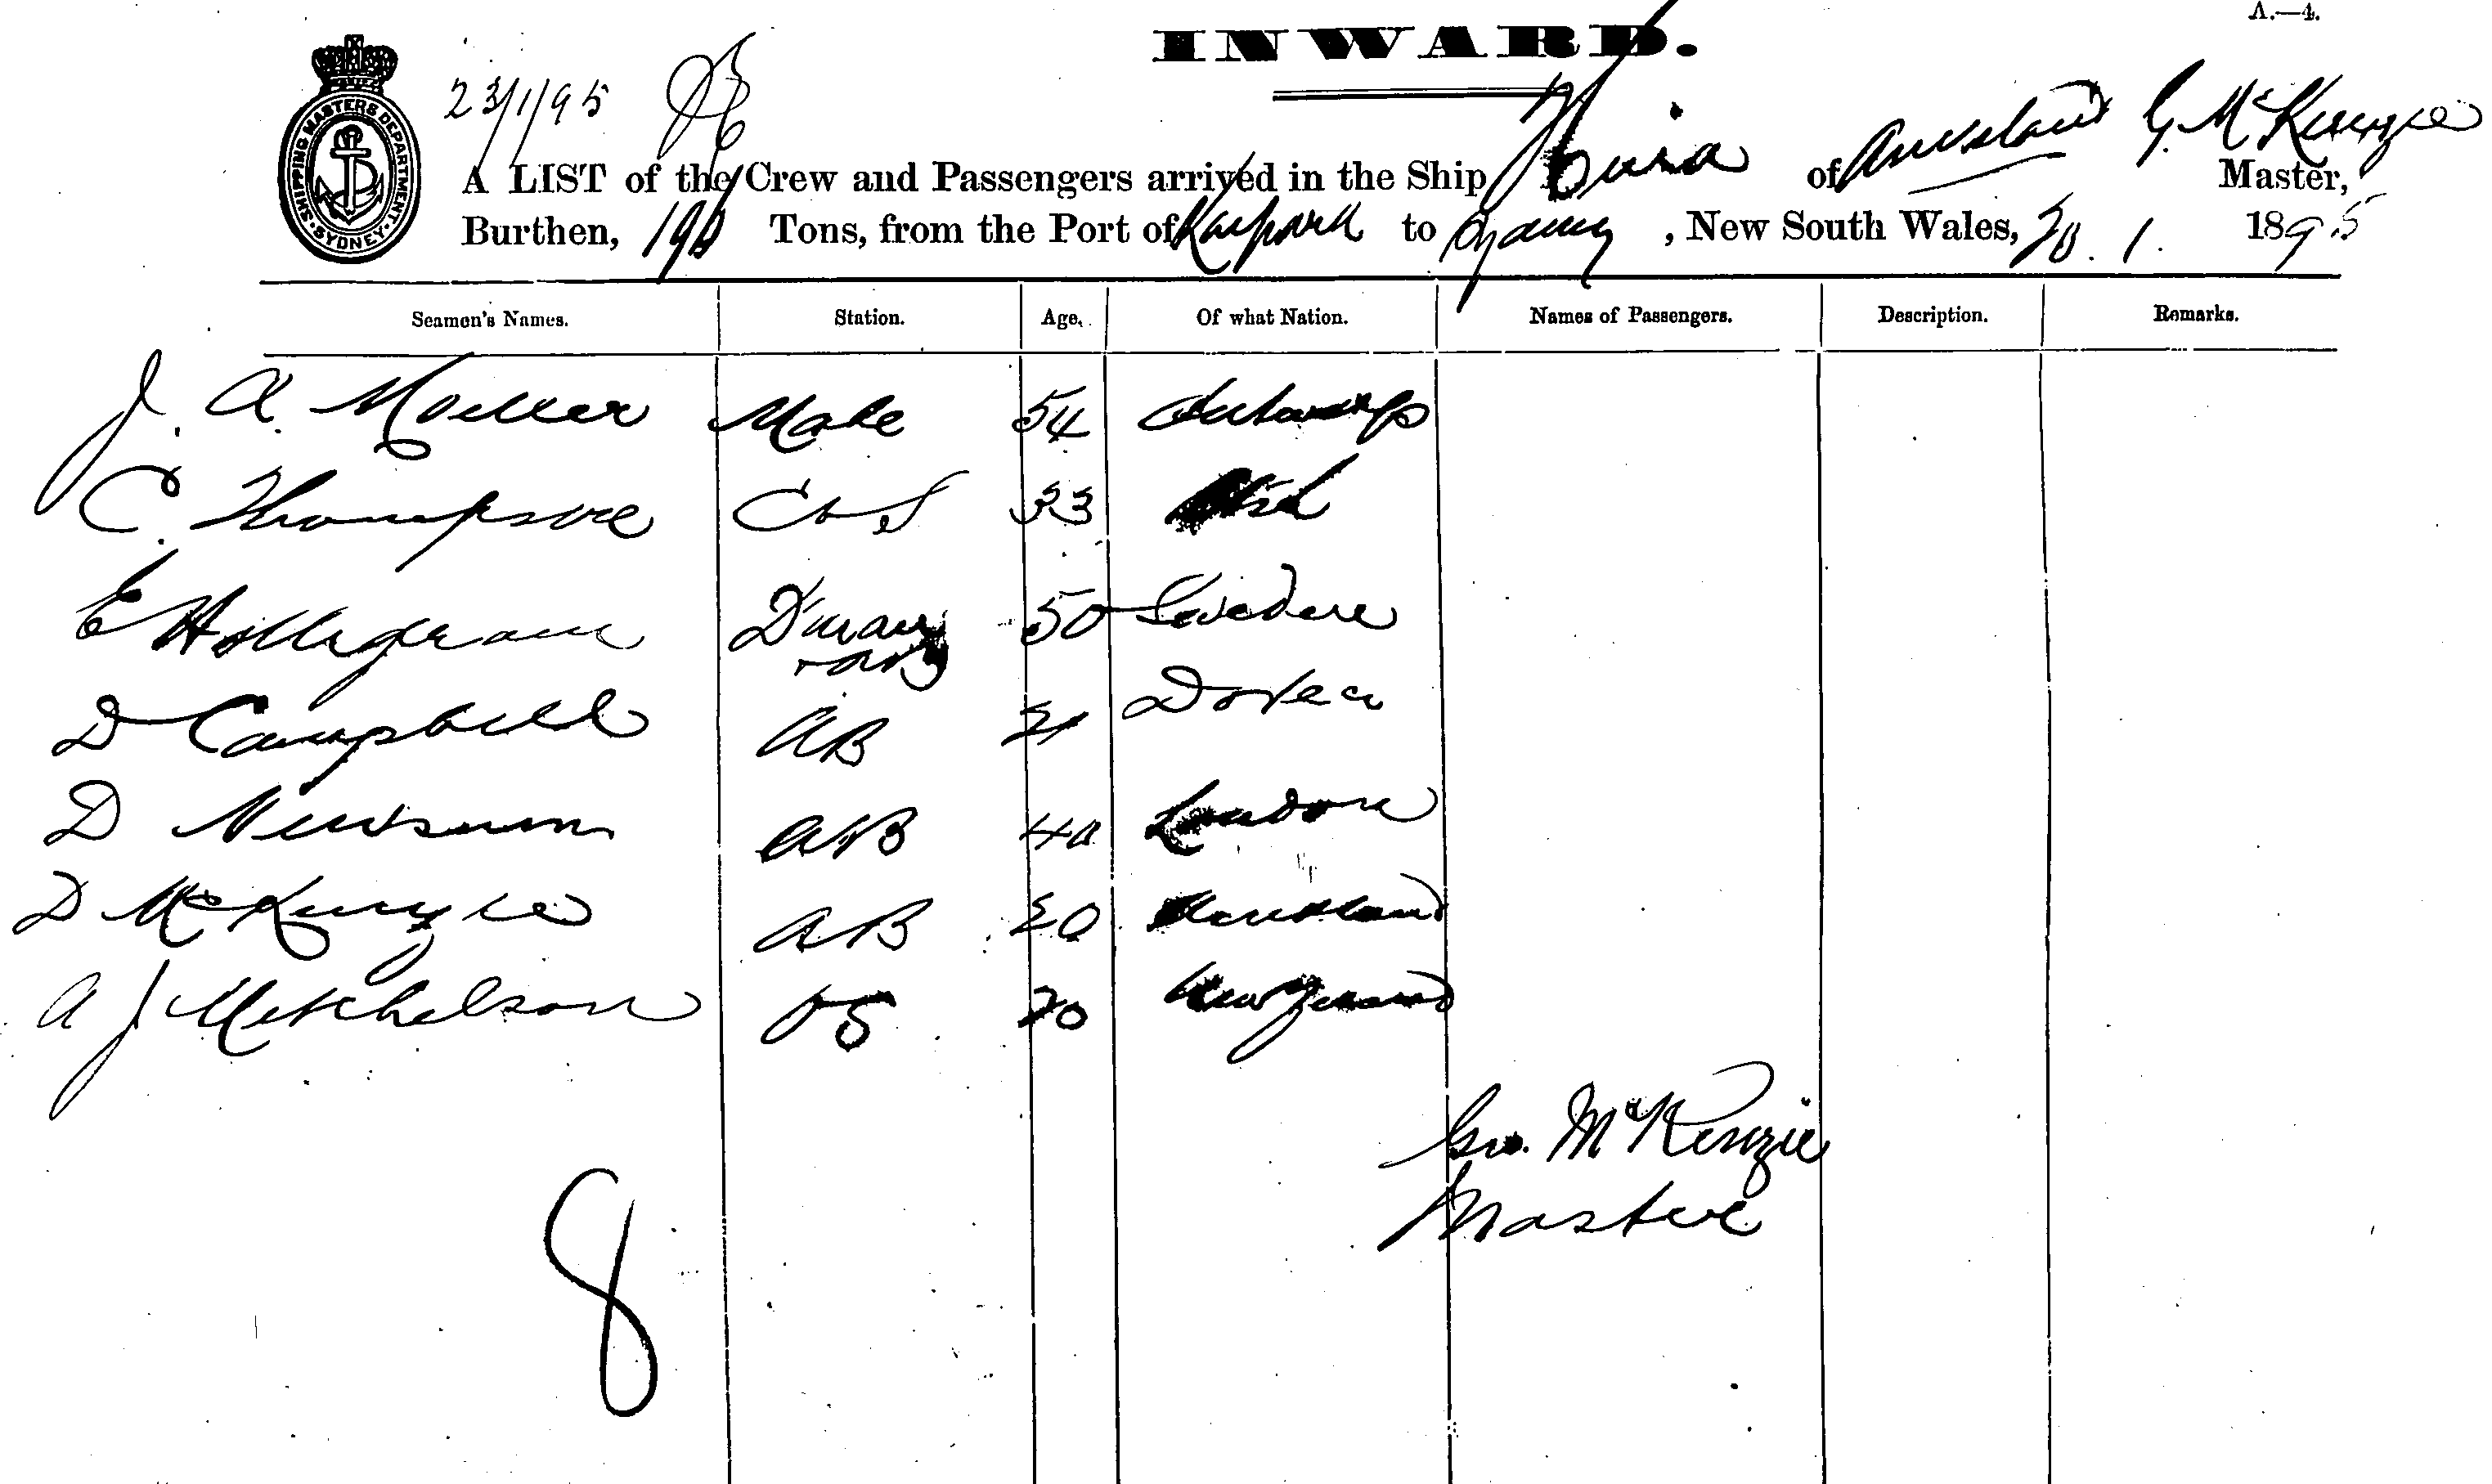 A.—4.
INWARD.
SHIPPING MASTERS DEPARTMENT SYDNEY
23/1/95
A LIST of the Crew and Passengers arrived in the Ship of Auckland G. McKenzie Master,
Burthen, Tons, from the Port of to Sydney, New South Wales, 20. 1. 1895
Seamen's Names. Station. Age. Of what Nation. Names of Passengers. Description. Remarks.
J. A. Moeller Mate 54 Antwerp
C. Thompson 33
E 50 Sweden
D Campbell AB
D Newsum AB 40 London
D McKenzie AB 20 Auckland
A J Mitchelson OS 20 New Zealand
Geo. McKenzie
Master
8